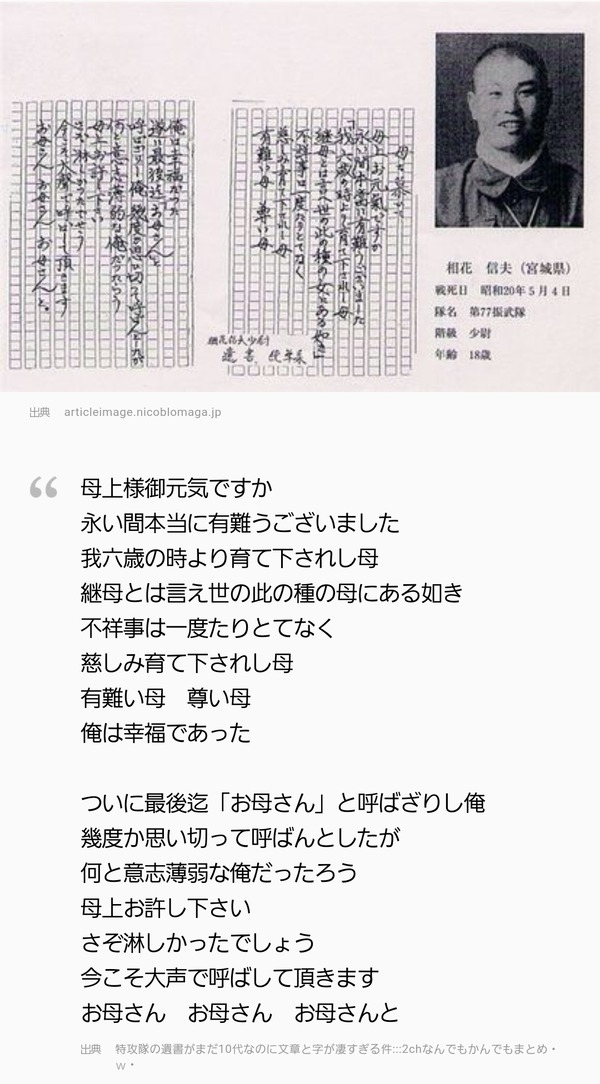 母を慕いて
母上お元気ですか
永い間本当に有難うございました
「我六歳の時より育て下されし母
継母とは言え世の此の種の女にある如き」
不祥事は一度たりとてなく
慈しみ育て下されし母
有難い母 尊い母
相花信夫少尉
遺書
俺は幸福だった
遂に最後迄「お母さん」と
呼ばざりし俺 幾度か思い切って呼ばんとしたが
何と意志薄弱な俺だったろう
母上お許し下さい
さぞ淋しかったでしょう
今こそ大声で呼ばして頂きます
お母さん お母さん お母さんと。
相花 信夫(宮城県)
戦死日 昭和20年5月4日
隊名 第77振武隊
階級 少尉
年齢 18歳
出典 articleimage.nicoblomaga.jp
母上様御元気ですか
永い間本当に有難うございました
我六歳の時より育て下されし母
継母とは言え世の此の種の母にある如き
不祥事は一度たりとてなく
慈しみ育て下されし母
有難い母 尊い母
俺は幸福であった
ついに最後迄「お母さん」と呼ばざりし俺
幾度か思い切って呼ばんとしたが
何と意志薄弱な俺だったろう
母上お許し下さい
さぞ淋しかったでしょう
今こそ大声で呼ばして頂きます
お母さん お母さん お母さんと
出典 特攻隊の遺書がまだ10代なのに文章と字が凄すぎる件:::2chなんでもかんでもまとめ・
ｗ・